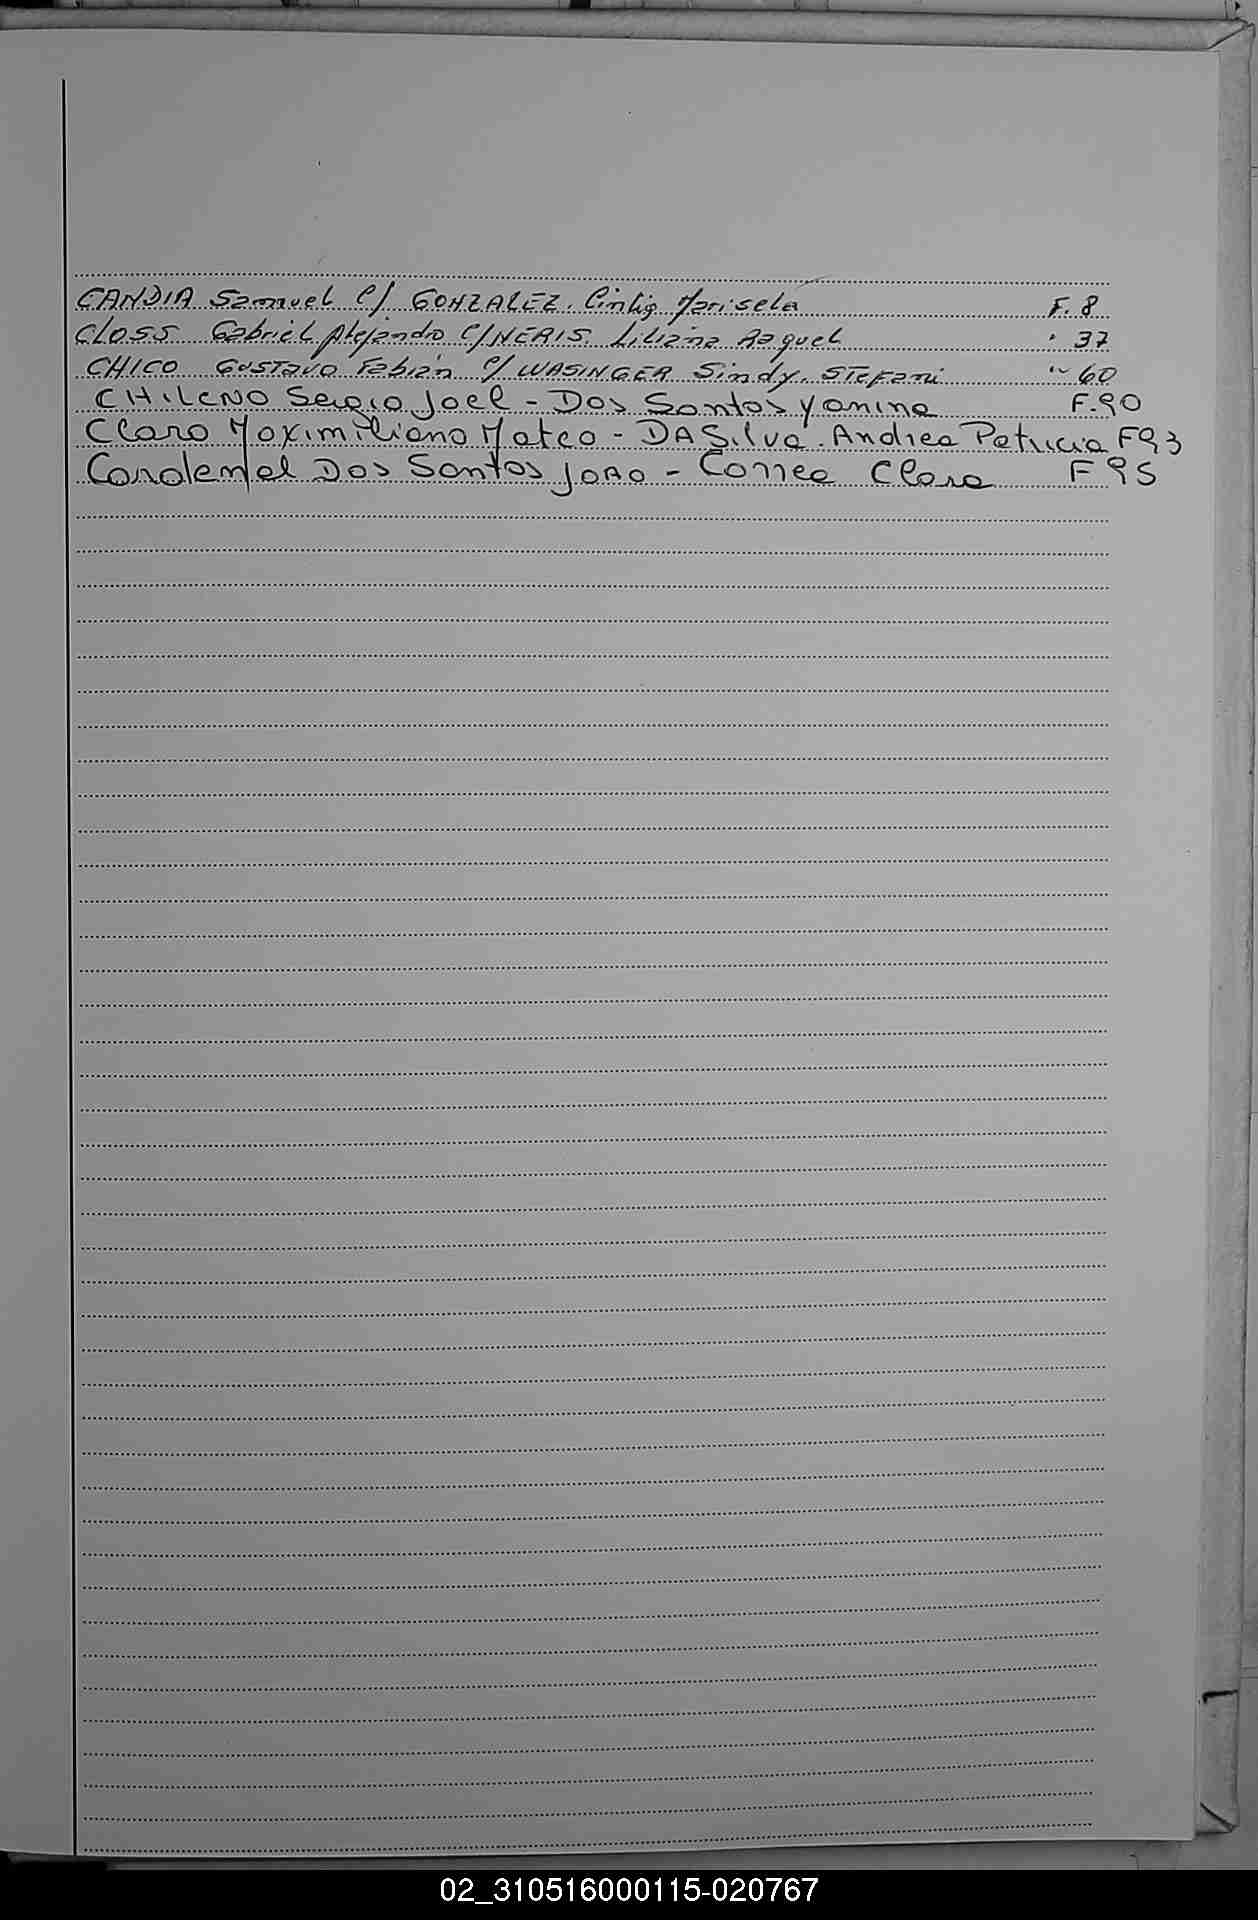 CANDIA Samuel C/ GONZALEZ. Cintia Marisela F. 8
CLOSS Gabriel Alejandro C/ NERIS. Liliana Raquel " 37
CHICO Gustavo Fabián C/ WASINGER Sindy. Stefani " 60
CHILENO Sergio Joel - Dos Santos Yanina F. 90
Claro Maximiliano Mateo - DA Silva. Andrea Patricia F 93
Dos Santos JOAO - Correa Clara F 95
02_310516000115-020767